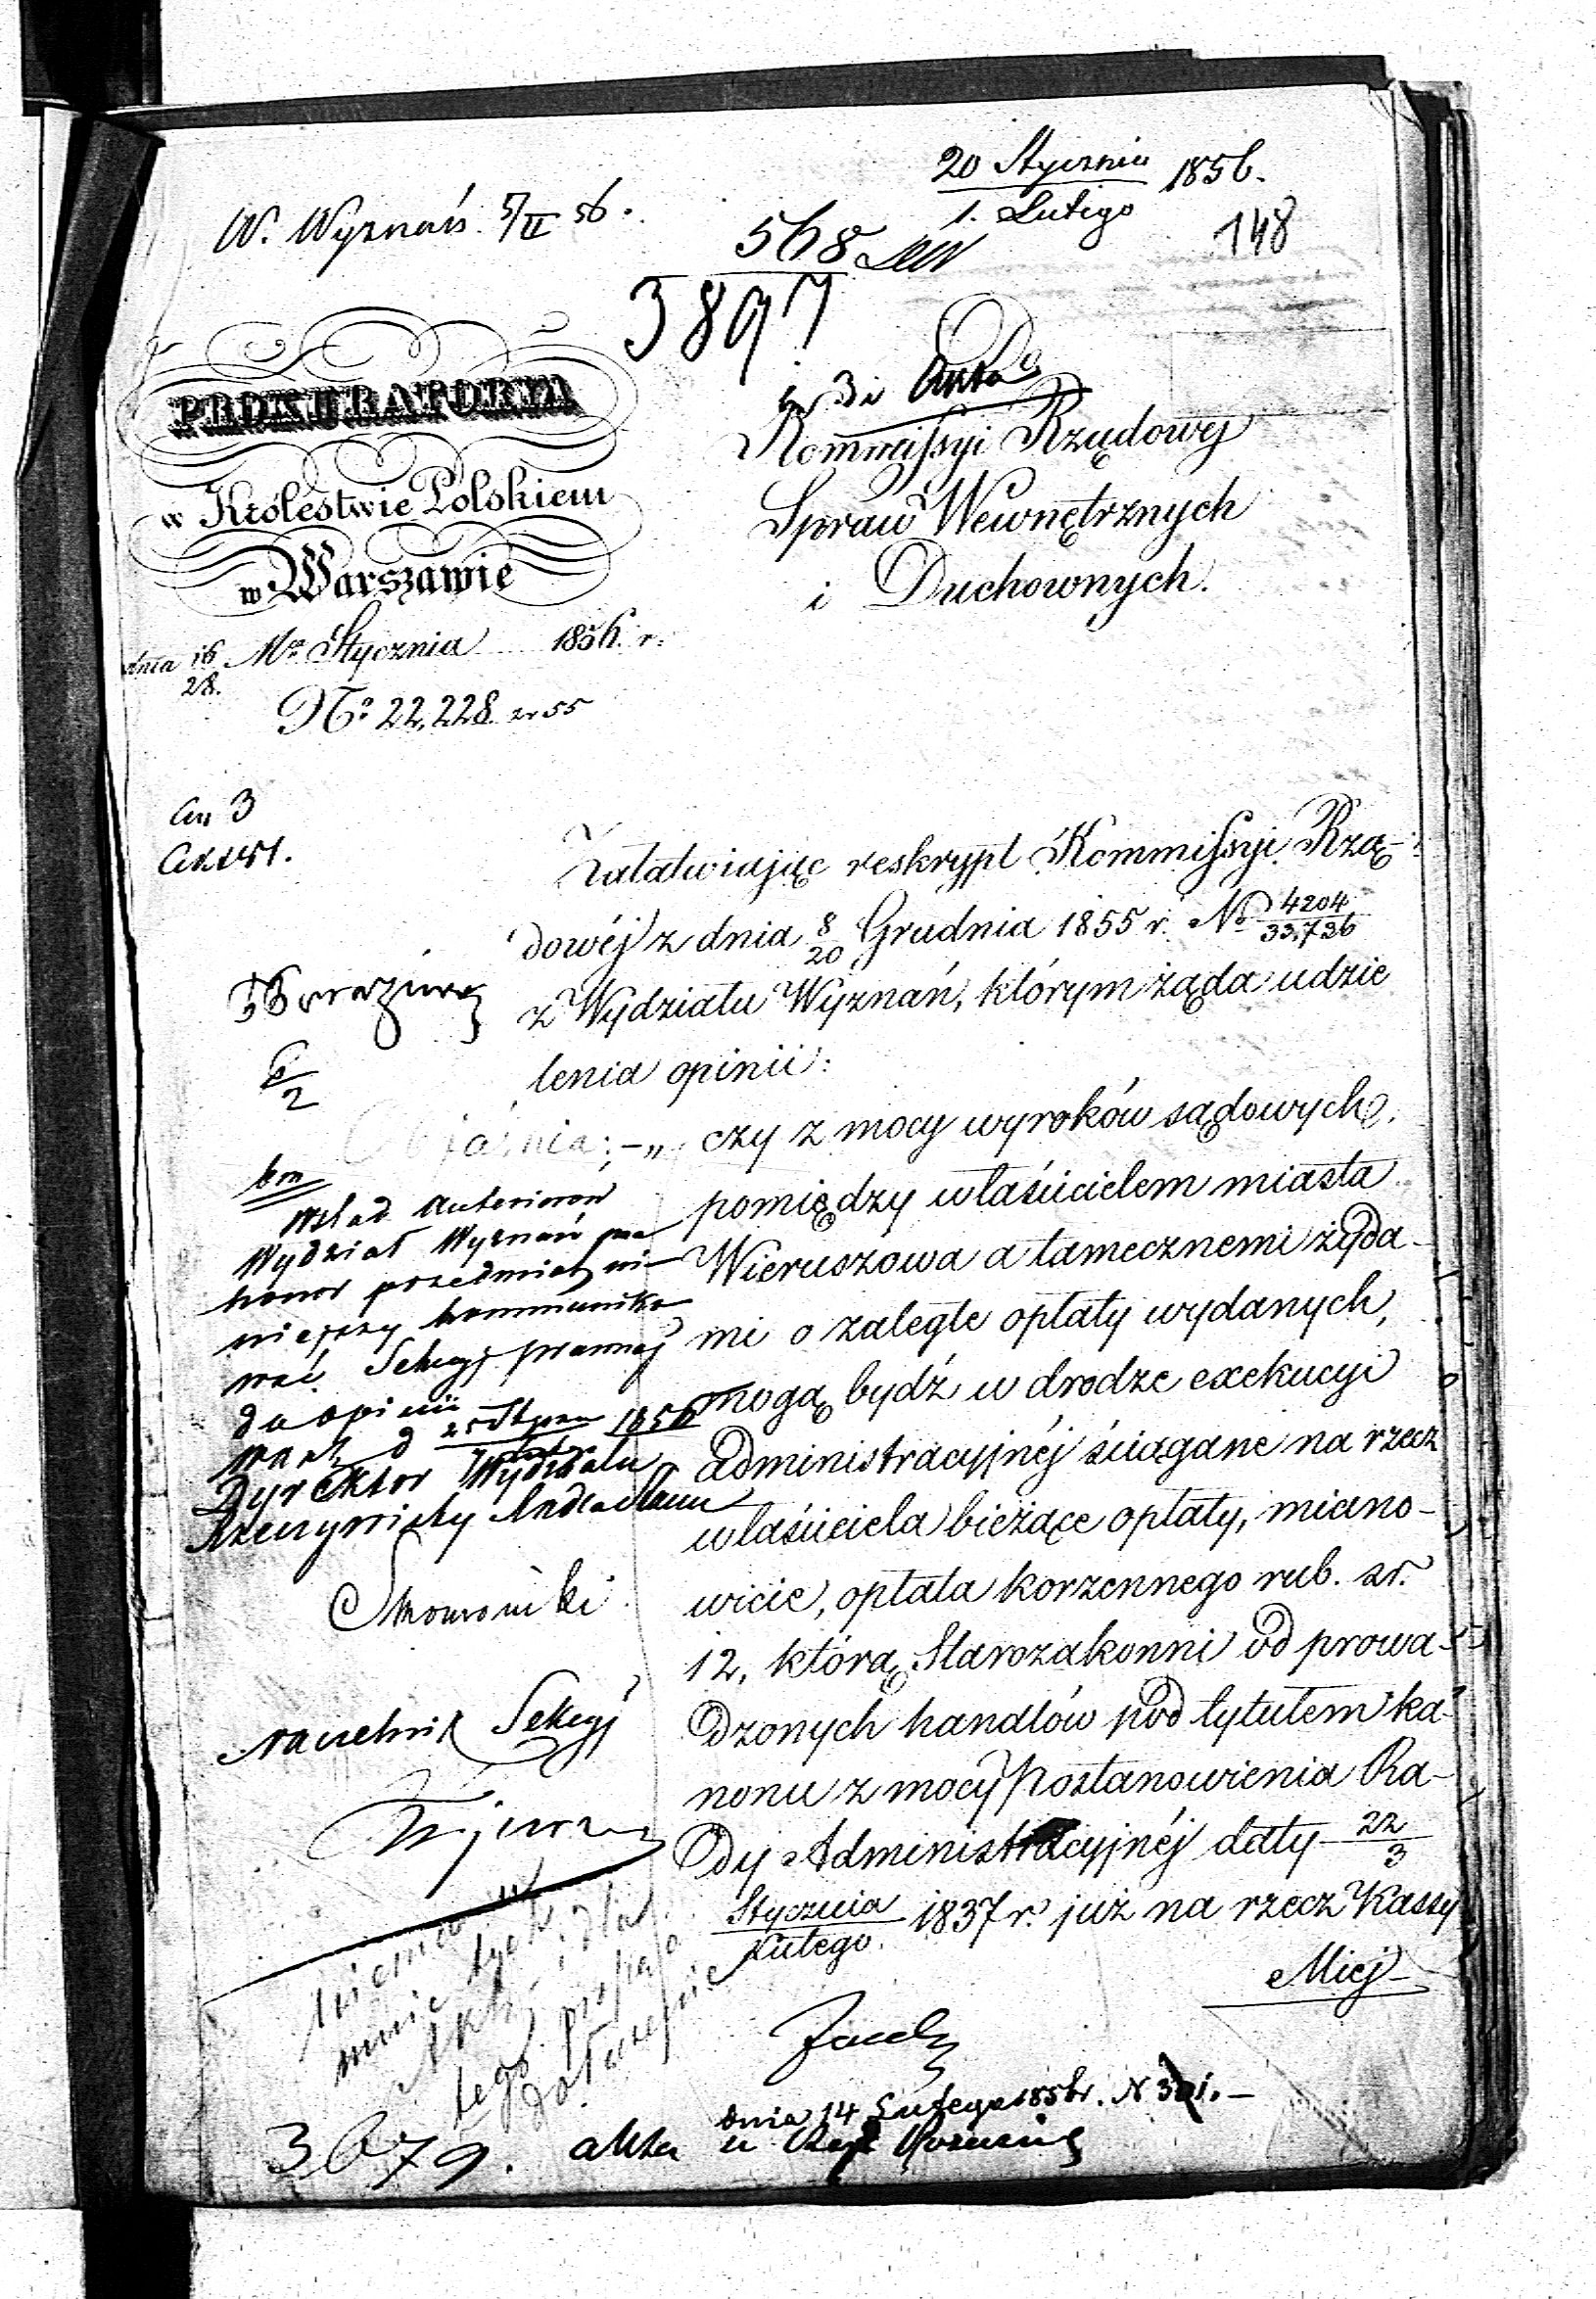 20 Stycznia 1856.
1. Lutego
W. Wyznań 5/II 56.
568
3897
148
PROKURATORYA
w Królestwie Polskiem
w Warszawie
dnia 16/28. Ma Stycznia 1856. r.
No 22,228 z 55
Do
Kommissyi Rządowej
Spraw Wewnętrznych
i Duchownych.
Załatwiając reskrypt Kommissyi Rzą-
dowéj z dnia 8/20 Grudnia 1855 r. No 4204/33,736
z Wydziału Wyznań, którym żąda udzie
lenia opinii:
Objaśnia: – „ czy z mocy wyroków sądowych
pomiędzy właścicielem miasta
Wieruszowa a tamecznemi żyda-
mi o zaległe opłaty wydanych,
mogą bydź w drodze exekucyi
administracyjnéj ściągane na rzecz
właściciela bieżące opłaty, miano-
wicie, opłata korzennego rub. sr.
12, którą Starozakonni od prowa-
dzonych handlów pod tytułem ka-
nonu z mocy Postanowienia Ra-
dy Administracyjnéj daty 22/3
Stycznia/Lutego 1837 r. już na rzecz Kassy
Miej-
6/2
Wydział Wyznań ma
honor przedmiot ni-
niejszy kommuniko
wać Sekcyi prawnej
do opinii
Dyrektor Wydziału
Naczelnik Sekcyi
dnia 14 Lutego 1856 r. N
3679. akta